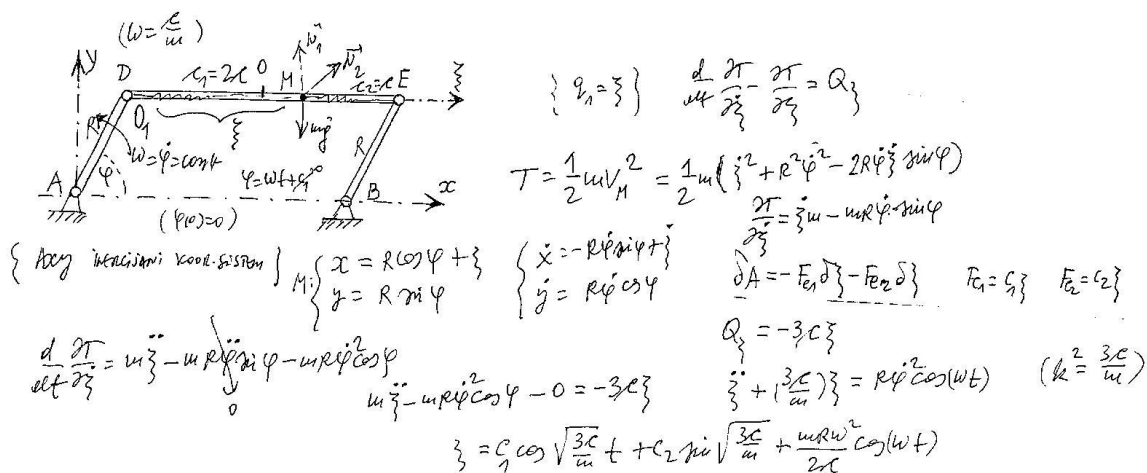 (ω = c/m)
y
D
c₁=2c
O
M
N⃗₁
N⃗₂
c₂=c
E
ξ
O₁
ξ
mg⃗
R
ω=φ̇=const
R
A
φ
φ=ωt+c₁⁰
B
x
(φ(0)=0)
{ q₁=ξ } d/dt ∂T/∂ξ̇ - ∂T/∂ξ = Q_ξ
T = 1/2 mV_M² = 1/2 m(ξ̇² + R²φ̇² - 2Rφ̇ξ̇ sinφ)
∂T/∂ξ̇ = ξ̇m - mRφ̇·sinφ
{ Axy INERCIJANI KOOR. SISTEM } M: { x = Rcosφ + ξ { ẋ = -Rφ̇sinφ + ξ̇
y = R sinφ ẏ = Rφ̇cosφ
δA = -Fe₁δξ - Fe₂δξ Fc₁=c₁ξ Fe₂=c₂ξ
Q_ξ = -3cξ
d/dt ∂T/∂ξ̇ = mξ̈ - mRφ̈sinφ - mRφ̇²cosφ
0
mξ̈ - mRφ̇²cosφ - 0 = -3cξ
ξ̈ + (3c/m)ξ = Rφ̇²cos(ωt) (k² = 3c/m)
ξ = C₁cos√(3c/m) t + C₂ sin√(3c/m) t + mRω²/2c cos(ωt)